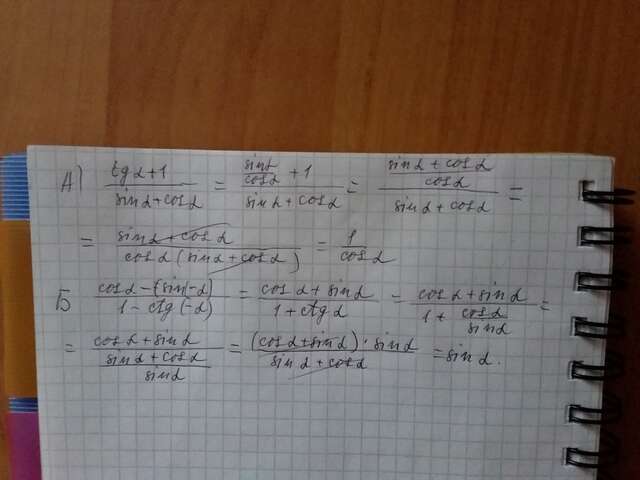 А) (tg α + 1)/(sin α + cos α) = (sin α/cos α + 1)/(sin α + cos α) = ((sin α + cos α)/cos α)/(sin α + cos α) =
= (sin α + cos α)/(cos α (sin α + cos α)) = 1/cos α
Б (cos α - (sin(-α))/(1 - ctg(-α)) = (cos α + sin α)/(1 + ctg α) = (cos α + sin α)/(1 + cos α/sin α) =
= (cos α + sin α)/((sin α + cos α)/sin α) = ((cos α + sin α) · sin α)/(sin α + cos α) = sin α.